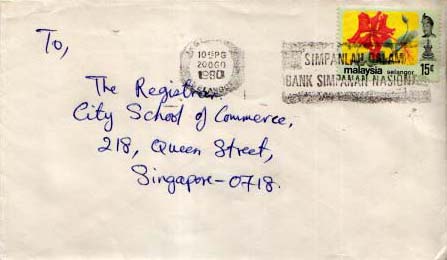 To,
The Registrar
City School of Commerce,
218, Queen Street,
Singapore-0718.
10 SPG
20 OGO
1980
SIMPANLAH DALAM
BANK SIMPANAN NASIONAL
malaysia selangor 15¢